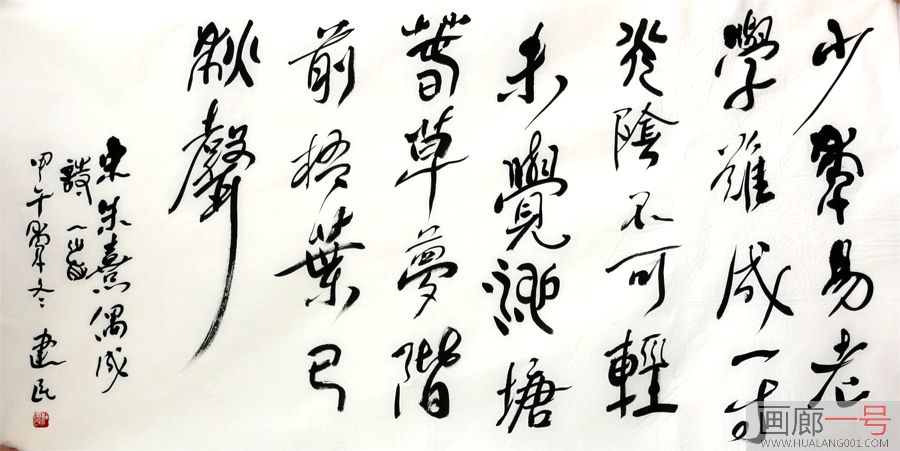 少年易老
學難成一寸
光陰不可輕
未覺池塘
春草夢階
前梧葉已
秋聲
宋朱熹偶成
詩一首
甲午年冬 建民
画廊一号
WWW.HUALANG001.COM